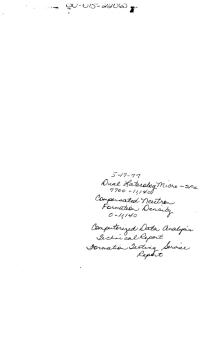 30-015-22065
5-17-77
Dual Laterolog Micro-SFL
7700-11,140
Compensated Neutron
Formation Density
0-11,140
Computerized Data Analysis
Technical Report
Formation Testing Service
Report